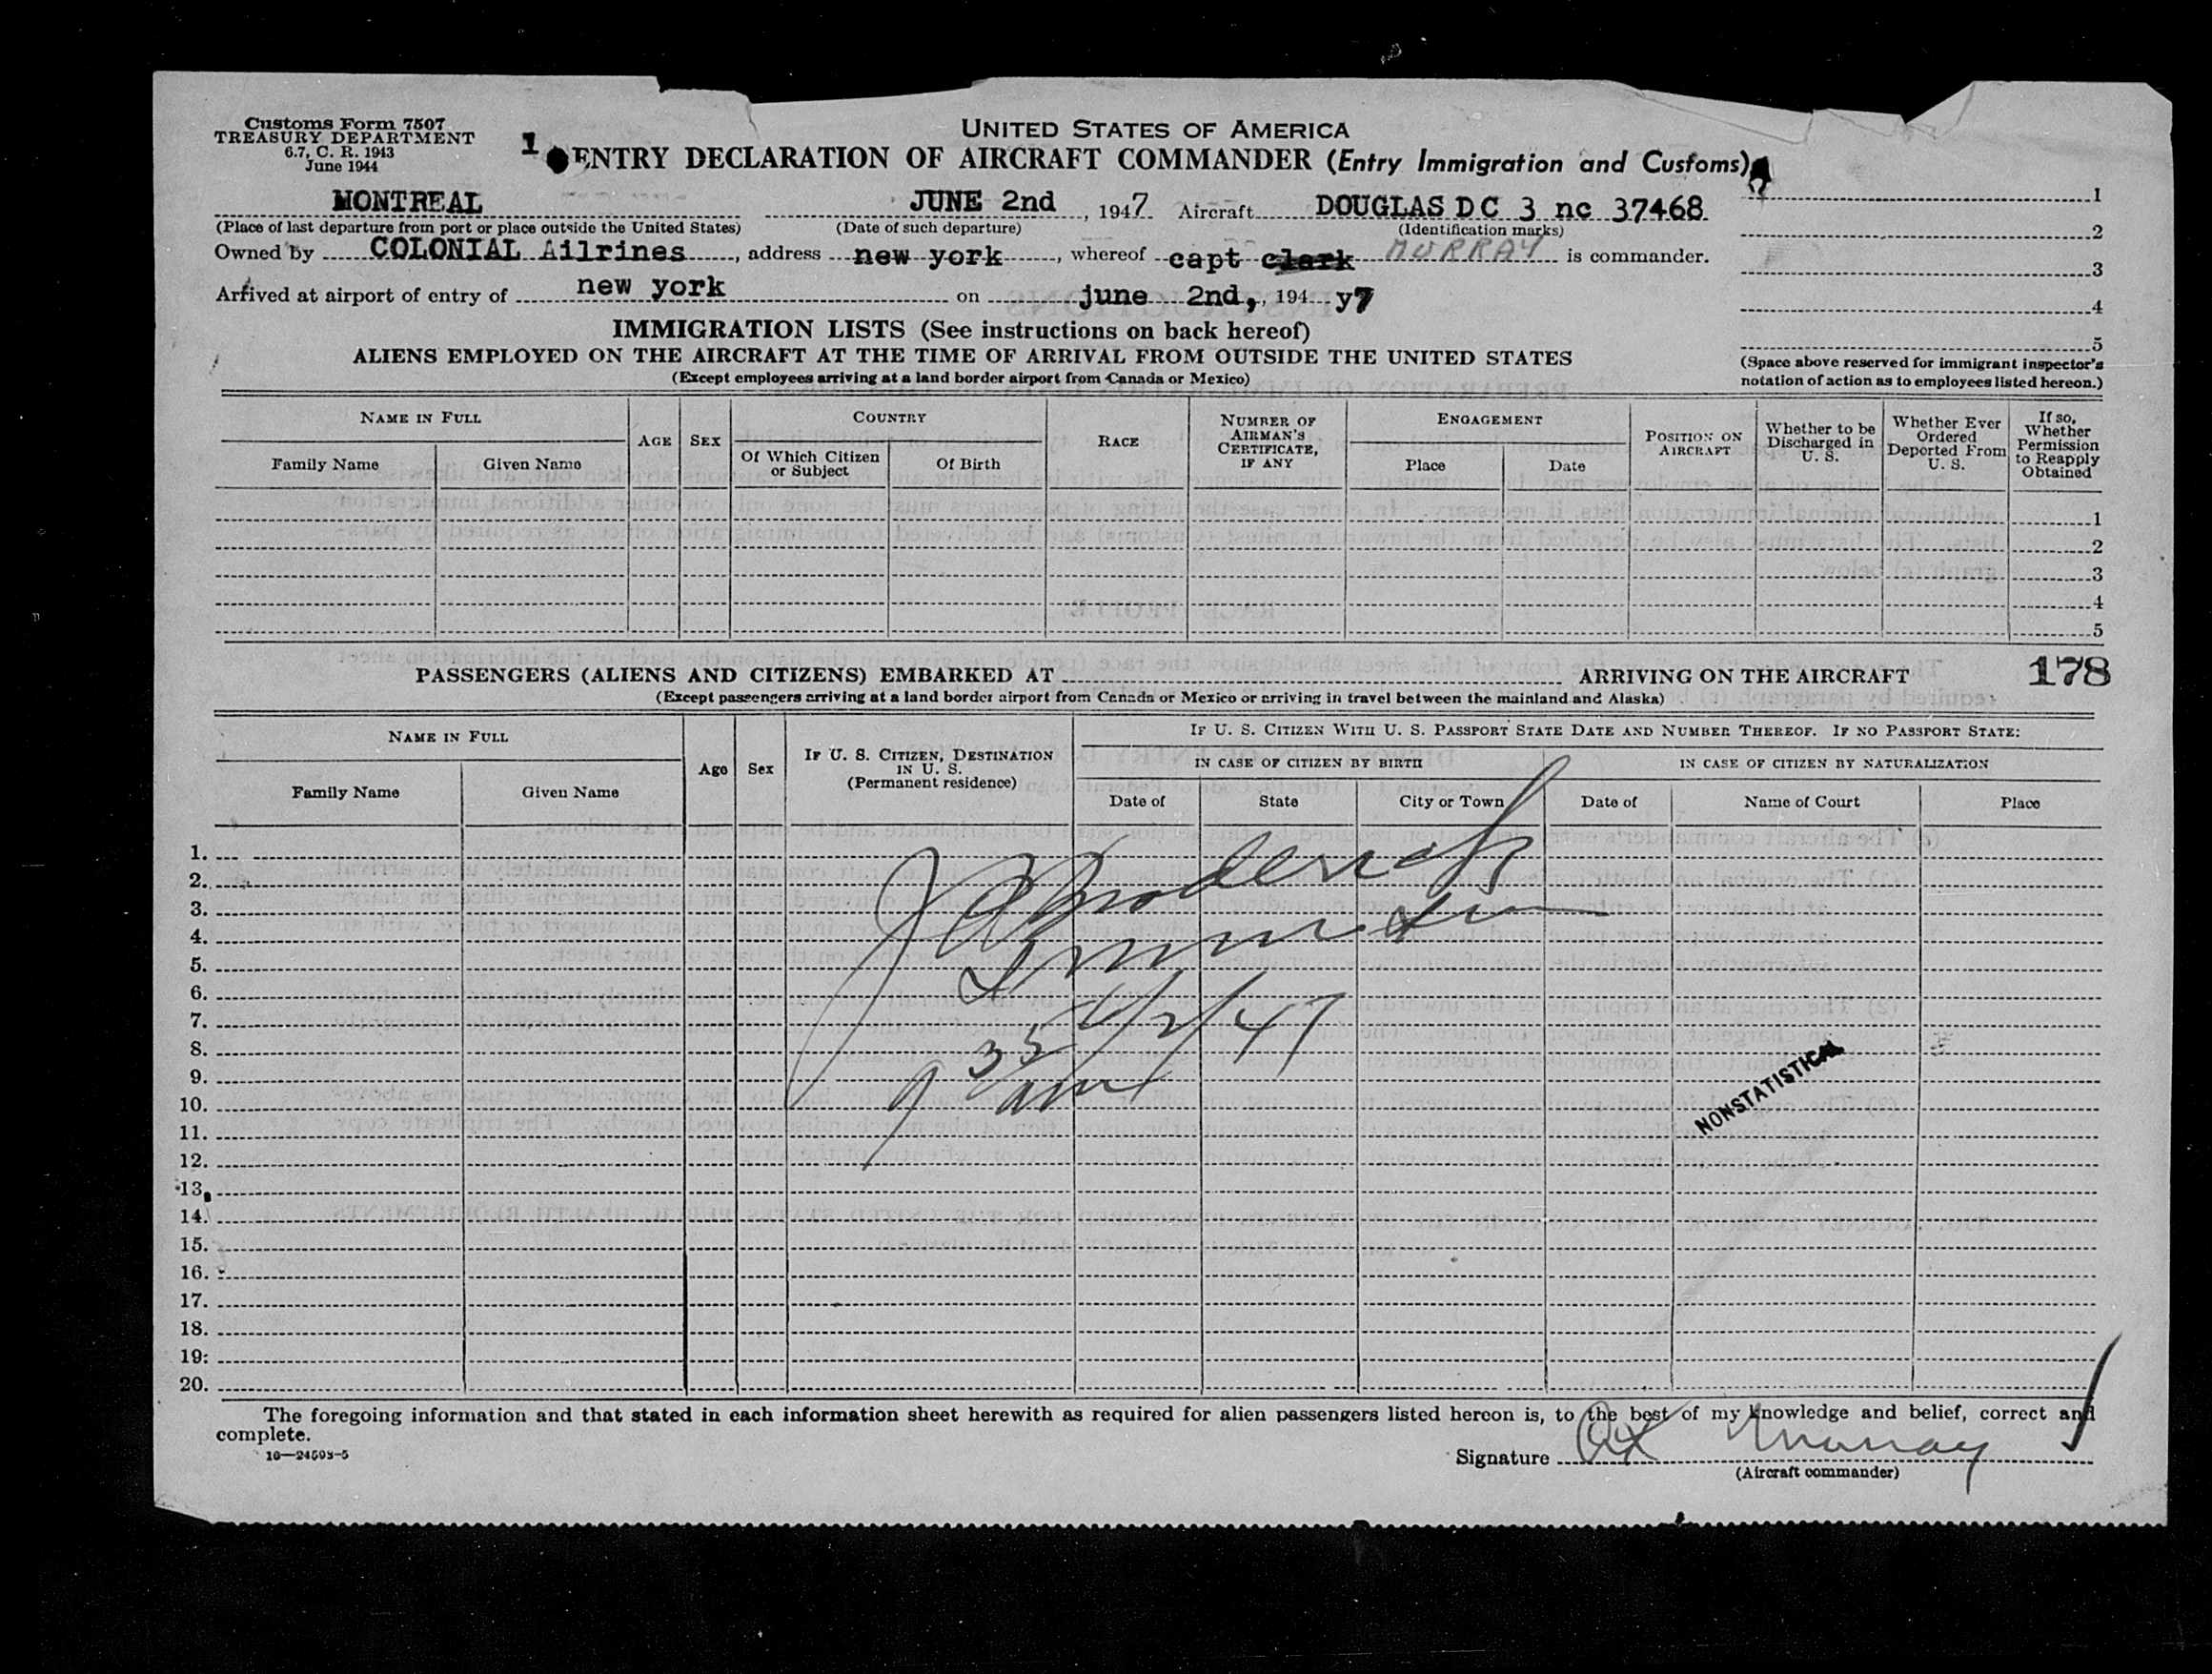 Customs Form 7507
TREASURY DEPARTMENT
6.7, C. R. 1943
June 1944
UNITED STATES OF AMERICA
1 ENTRY DECLARATION OF AIRCRAFT COMMANDER (Entry Immigration and Customs)
MONTREAL JUNE 2nd, 1947 Aircraft DOUGLAS DC 3 nc 37468
(Place of last departure from port or place outside the United States) (Date of such departure) (Identification marks)
Owned by COLONIAL Ailrines, address new york, whereof capt clark MURRAY is commander.
Arrived at airport of entry of new york on june 2nd,, 194 y7
1
2
3
4
5
(Space above reserved for immigrant inspector's
notation of action as to employees listed hereon.)
IMMIGRATION LISTS (See instructions on back hereof)
ALIENS EMPLOYED ON THE AIRCRAFT AT THE TIME OF ARRIVAL FROM OUTSIDE THE UNITED STATES
(Except employees arriving at a land border airport from Canada or Mexico)
NAME IN FULL
Family Name
Given Name
AGE
SEX
COUNTRY
Of Which Citizen
or Subject
Of Birth
RACE
NUMBER OF
AIRMAN'S
CERTIFICATE,
IF ANY
ENGAGEMENT
Place
Date
POSITION ON
AIRCRAFT
Whether to be
Discharged in
U. S.
Whether Ever
Ordered
Deported From
U. S.
If so,
Whether
Permission
to Reapply
Obtained
1
2
3
4
5
PASSENGERS (ALIENS AND CITIZENS) EMBARKED AT ARRIVING ON THE AIRCRAFT 178
(Except passengers arriving at a land border airport from Canada or Mexico or arriving in travel between the mainland and Alaska)
NAME IN FULL
Family Name
Given Name
Age
Sex
IF U. S. CITIZEN, DESTINATION
IN U. S.
(Permanent residence)
IF U. S. CITIZEN WITH U. S. PASSPORT STATE DATE AND NUMBER THEREOF. IF NO PASSPORT STATE:
IN CASE OF CITIZEN BY BIRTH
Date of
State
City or Town
IN CASE OF CITIZEN BY NATURALIZATION
Date of
Name of Court
Place
1.
2.
3.
4.
5.
6.
7.
8.
9.
10.
11.
12.
13.
14.
15.
16.
17.
18.
19.
20.
6/2/47
9 35 am
NONSTATISTICAL
The foregoing information and that stated in each information sheet herewith as required for alien passengers listed hereon is, to the best of my knowledge and belief, correct and
complete.
16—24593-5
Signature Murray
(Aircraft commander)